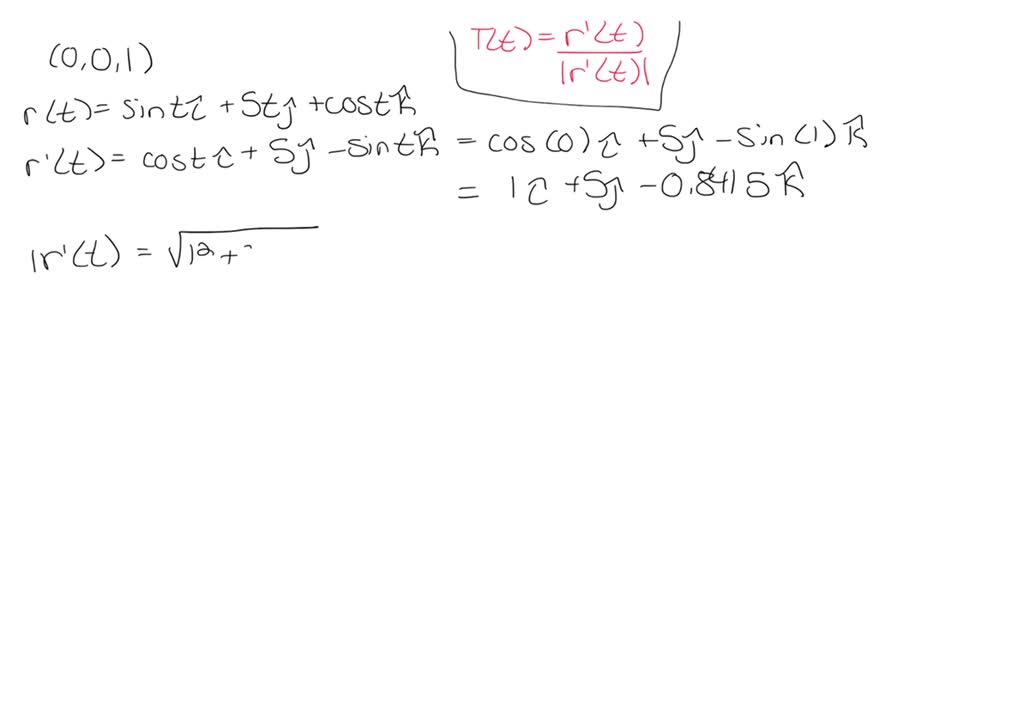 (0,0,1)
T(t) = r'(t) / |r'(t)|
r(t) = sin t î + 5t ĵ + cos t k̂
r'(t) = cos t î + 5ĵ - sin t k̂ = cos(0) î + 5ĵ - sin(1) k̂
= 1î + 5ĵ - 0.8415 k̂
|r'(t) = √1² +